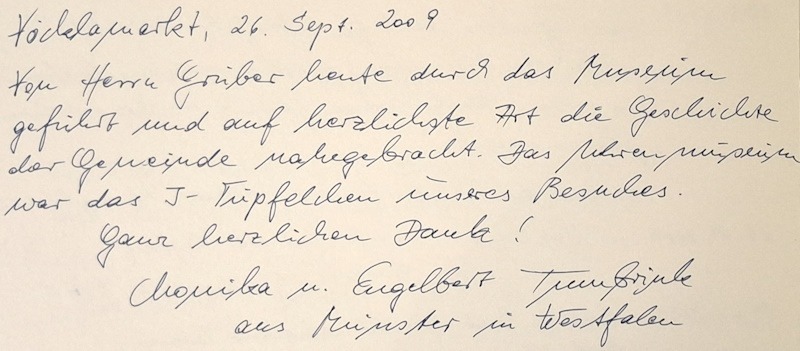 Vöcklamarkt, 26. Sept. 2009
Von Herrn Gruber heute durch das Museum
geführt und auf herzlichste Art die Geschichte
der Gemeinde nahegebracht. Das Uhrenmuseum
war das I-Tüpfelchen unseres Besuches.
Ganz herzlichen Dank!
Monika u. Engelbert
aus Münster in Westfalen